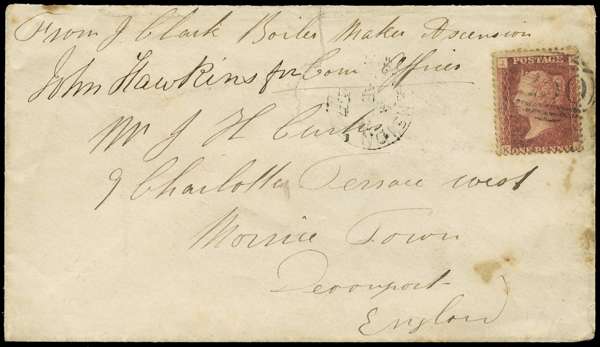 From J. Clark Boiler Maker Ascension
John Hawkins for Com Officer
Mr J H Curtis
9 Charlotte Terrace west
Morrice Town
Devonport
England
POSTAGE
ONE PENNY